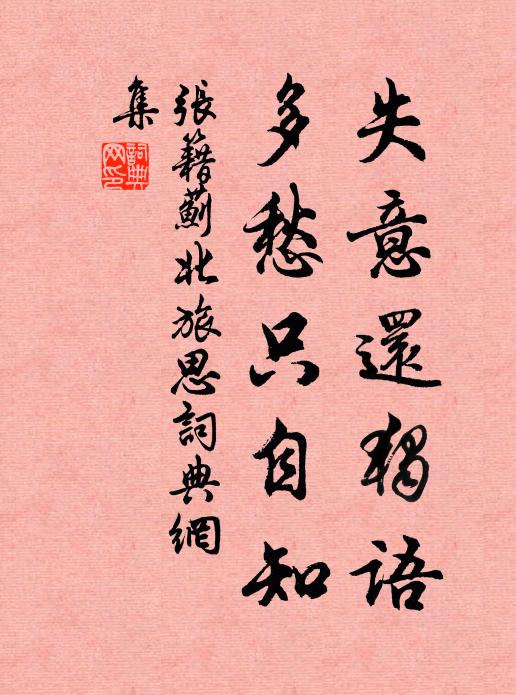 失意還獨語
多愁只自知
張籍薊北旅思詞典網
集
詞典
网印